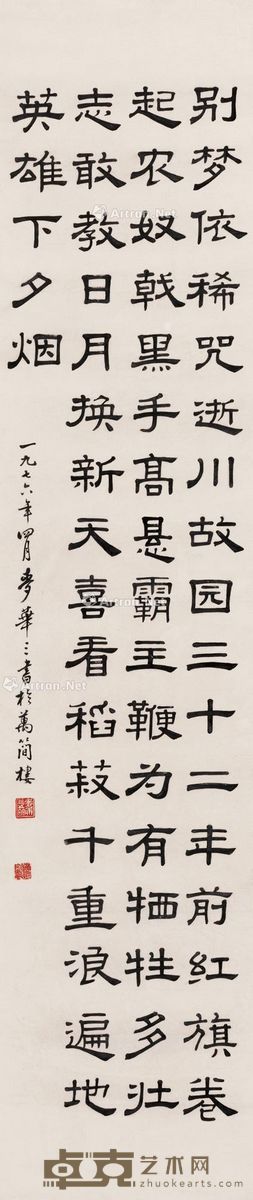 别梦依稀咒逝川故园三十二年前红旗卷
起农奴戟黑手高悬霸主鞭为有牺牲多壮
志敢教日月换新天喜看稻菽千重浪遍地
英雄下夕烟
一九七六年四月麥華三書於萬簡樓
卓克艺术网
zhuokearts.com